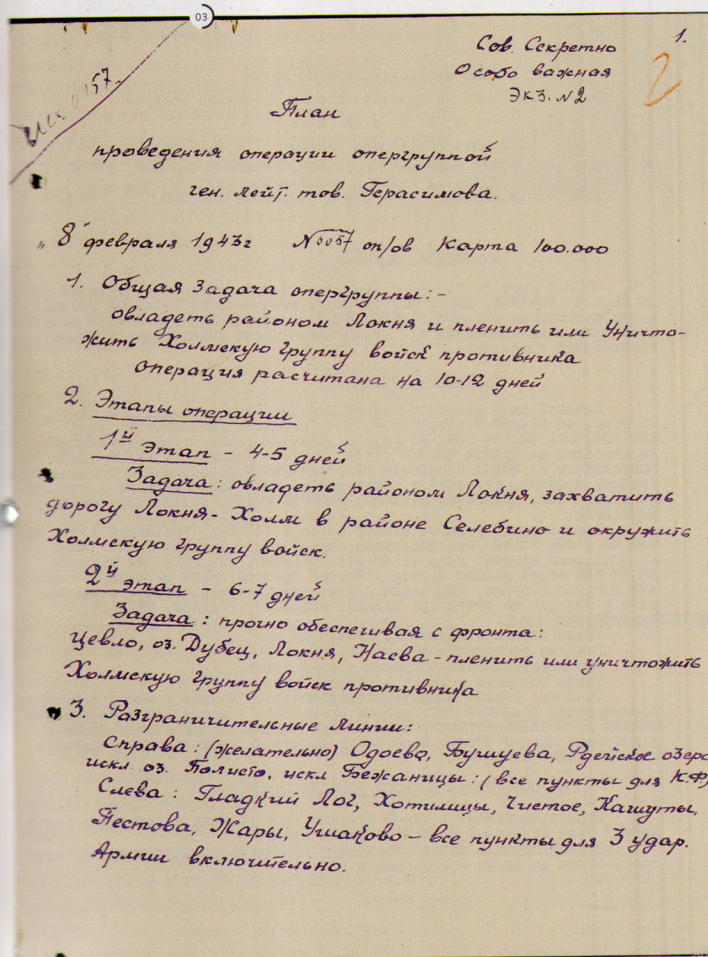 03
1.
Сов. Секретно
Особо важная
Экз. №2
2
План
проведения операции опергруппой
ген. лейт. тов. Герасимова.
"8" февраля 1943г №0057 оп/ов Карта 100.000
1. Общая задача опергруппы:-
овладеть районом Локня и пленить или уничто-
жить Холмскую группу войск противника
Операция расчитана на 10-12 дней
2. Этапы операции
1й этап - 4-5 дней
Задача: овладеть районом Локня, захватить
дорогу Локня-Холм в районе Селебино и окружить
Холмскую группу войск.
2й этап - 6-7 дней
Задача: прочно обеспечивая с фронта:
Цевло, оз. Дубец, Локня, Насва - пленить или уничтожить
Холмскую группу войск противника
3. Разграничительные линии:
Справа: (желательно) Одоево, Бушуева, Рдейское озеро
искл. оз. Полисто, искл Бежаницы: (все пункты для К.Ф)
Слева: Гладкий Лог, Хотилицы, Чистое, Кашуты,
Пестова, Жары, Ушаково - все пункты для 3 удар.
Армии включительно.